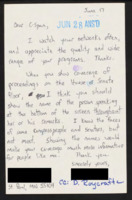 June 17
Dear C-Span, JUN 28 REC'D
I watch your networks often,
and appreciate the quality and wide
range of your programs. Thanks.
When you show coverage of
proceedings on the House or Senate
I think you should
show the name of the person speaking
at the bottom of the screen throughout
his or her remarks. I know the faces
of some congresspeople and senators, but
not most. Showing the names would
make your much more informative
for people like me. Thank you,
Sincerely yours,
St. Paul, MN 55104
cc: D. Roycroft